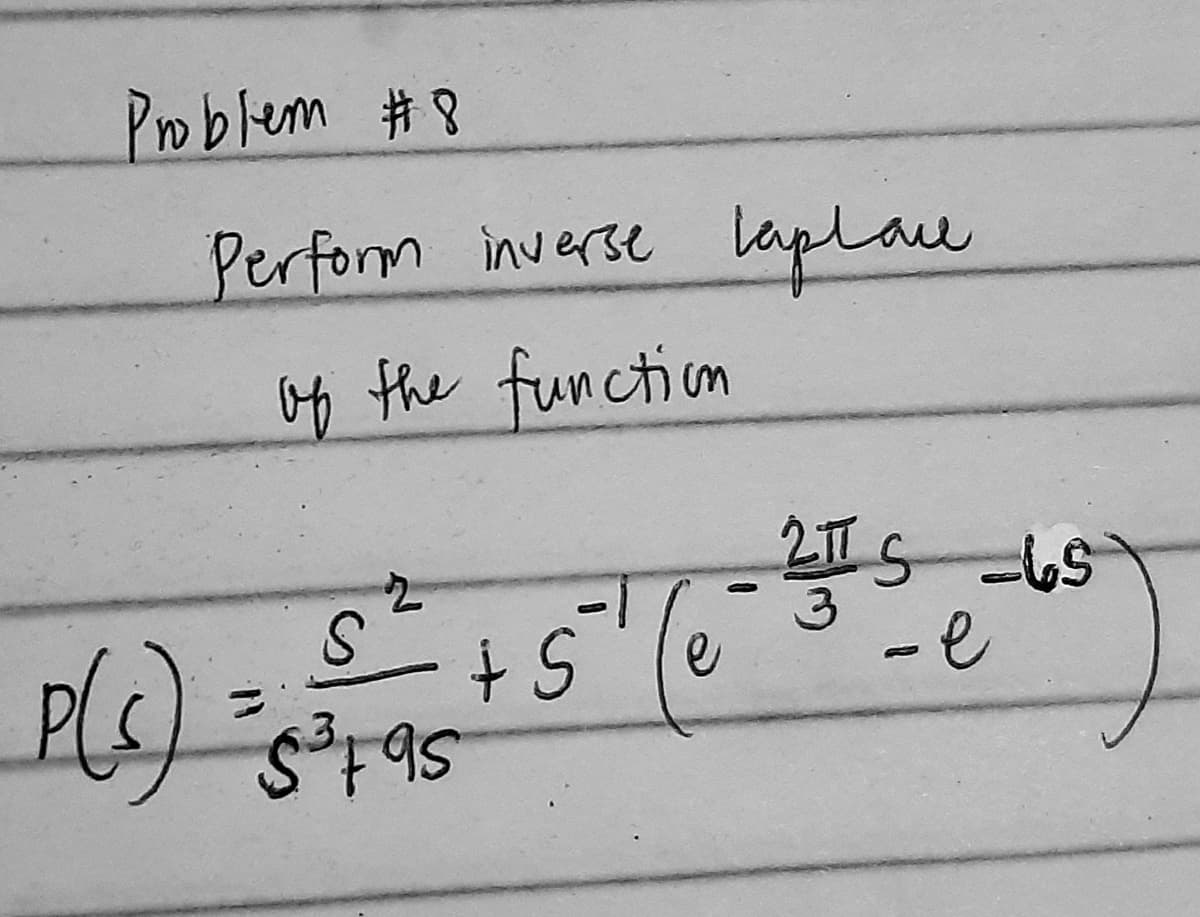 Problem #8
Perform inverse laplace
of the function
P(s) = s²/(s³+9s) + s⁻¹(e^(-2π/3 s) - e^(-6s))